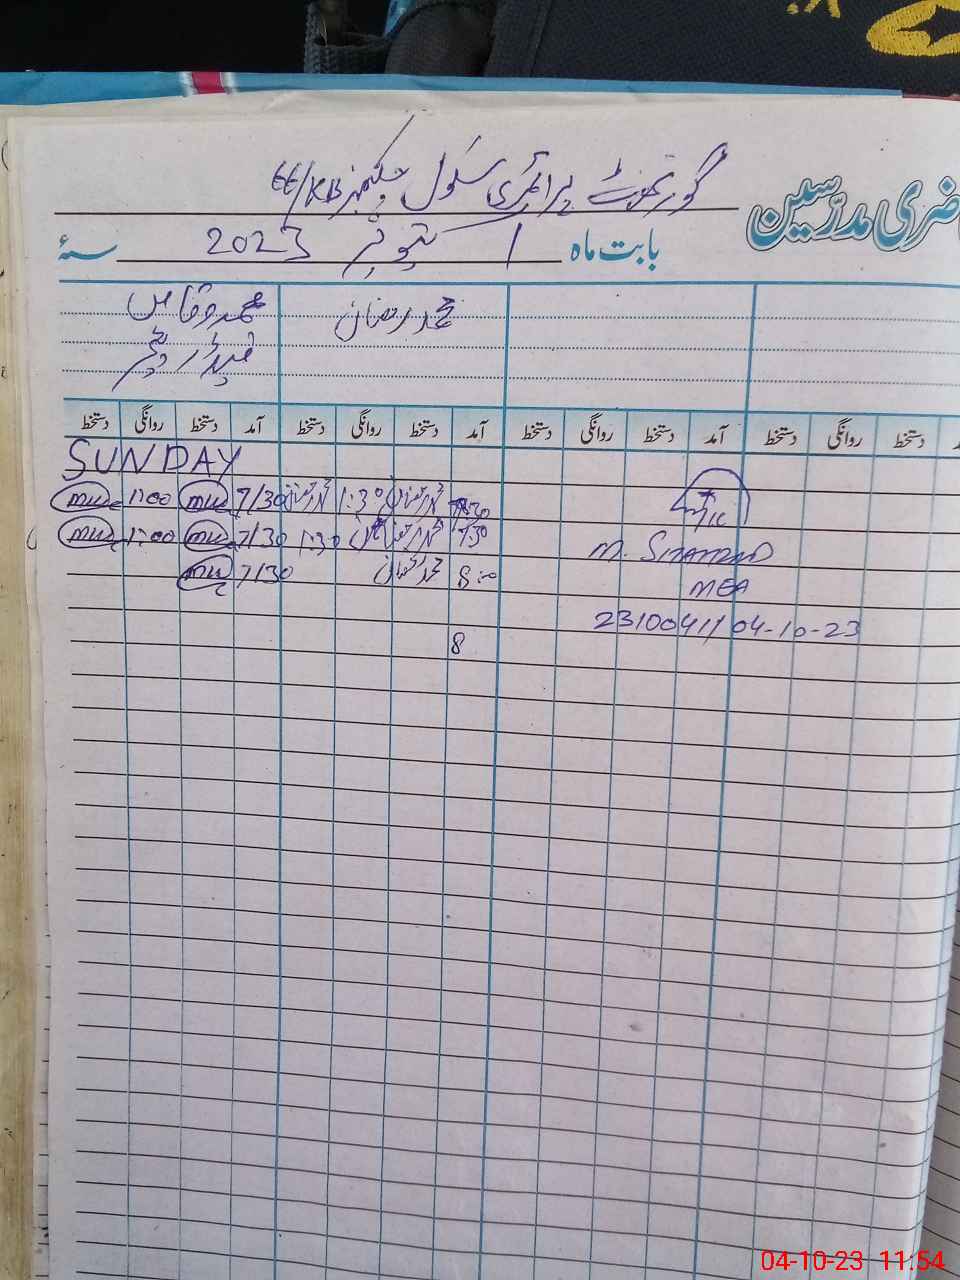 گورنمنٹ پرائمری سکول چکنمبر 66/KB
ضری مدرسین
بابت ماہ اکتوبر 2023 سنۂ
محمد رمضان محمد وقاص
آمد دستخط روانگی دستخط آمد دستخط روانگی دستخط آمد دستخط روانگی دستخط
SUNDAY
7:30 محمد رمضان 1:30 محمد رمضان 7/30 MW 1:00 MW
7:30 محمد رمضان 1:30 7/30 MW 1:00 MW
M. SHAHZAD
8:00 محمد رمضان 7/30 MW
MEA
23100411/04-10-23
8
04-10-23 11:54